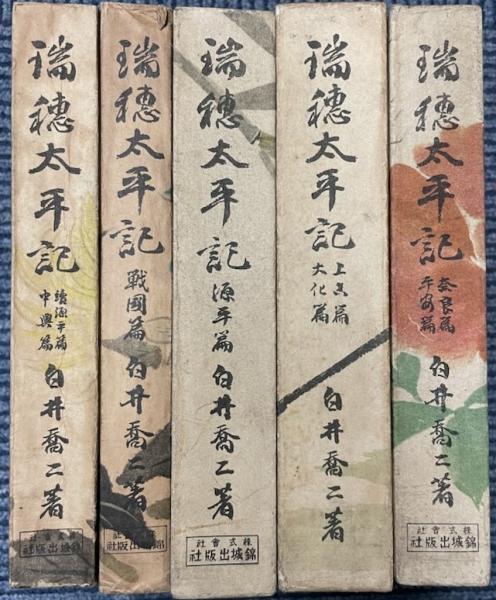 瑞穗太平記
續源平篇
中興篇
白井喬二著
株式會社
錦城出版社
瑞穗太平記
戰國篇
白井喬二著
株式會社
錦城出版社
瑞穗太平記
源平篇
白井喬二著
株式會社
錦城出版社
瑞穗太平記
上古篇
大化篇
白井喬二著
株式會社
錦城出版社
瑞穗太平記
奈良篇
平安篇
白井喬二著
株式會社
錦城出版社